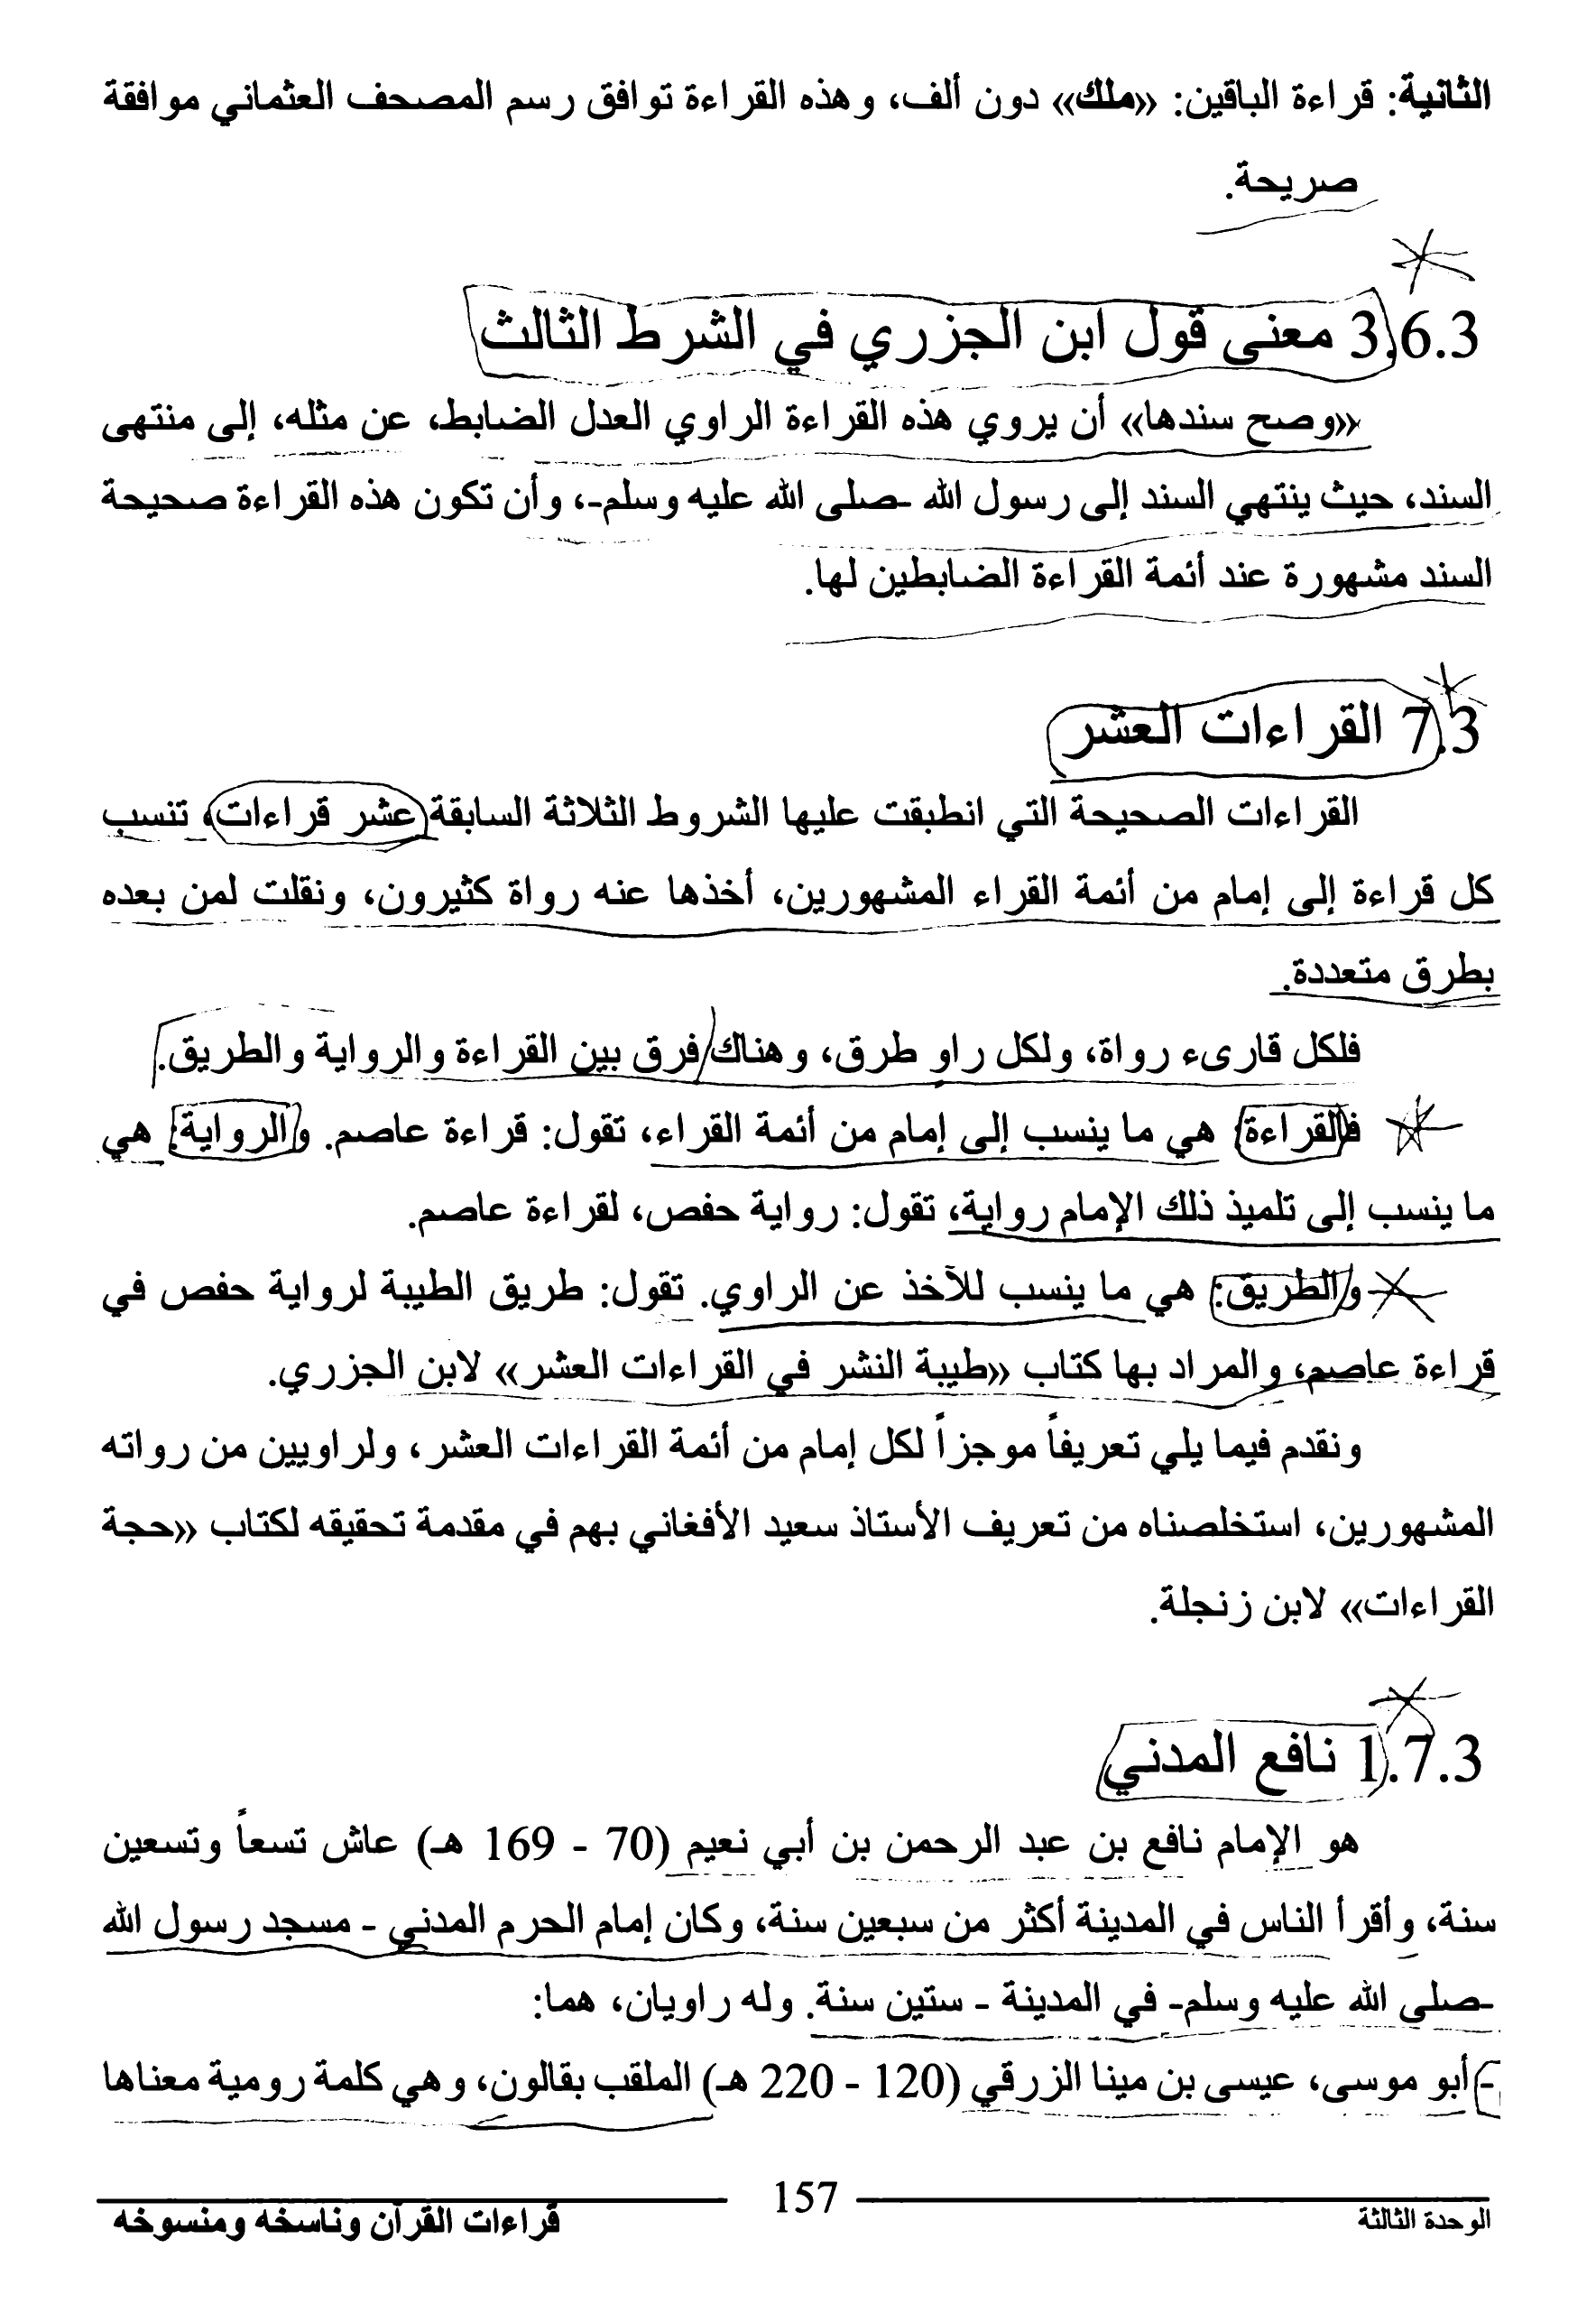 الثانية: قراءة الباقين: «ملك» دون ألف، وهذه القراءة توافق رسم المصحف العثماني موافقة
صريحة.
3.6.3 معنى قول ابن الجزري في الشرط الثالث
«وصح سندها» أن يروي هذه القراءة الراوي العدل الضابط، عن مثله، إلى منتهى
السند، حيث ينتهي السند إلى رسول الله -صلى الله عليه وسلم-، وأن تكون هذه القراءة صحيحة
السند مشهورة عند أئمة القراءة الضابطين لها.
7.3 القراءات العشر
القراءات الصحيحة التي انطبقت عليها الشروط الثلاثة السابقة عشر قراءات، تنسب
كل قراءة إلى إمام من أئمة القراء المشهورين، أخذها عنه رواة كثيرون، ونقلت لمن بعده
بطرق متعددة.
فلكل قارىء رواة، ولكل راوٍ طرق، وهناك فرق بين القراءة والرواية والطريق.
فالقراءة: هي ما ينسب إلى إمام من أئمة القراء، تقول: قراءة عاصم. والرواية: هي
ما ينسب إلى تلميذ ذلك الإمام رواية، تقول: رواية حفص، لقراءة عاصم.
والطريق: هي ما ينسب للآخذ عن الراوي. تقول: طريق الطيبة لرواية حفص في
قراءة عاصم، والمراد بها كتاب «طيبة النشر في القراءات العشر» لابن الجزري.
ونقدم فيما يلي تعريفاً موجزاً لكل إمام من أئمة القراءات العشر، ولراويين من رواته
المشهورين، استخلصناه من تعريف الأستاذ سعيد الأفغاني بهم في مقدمة تحقيقه لكتاب «حجة
القراءات» لابن زنجلة.
1.7.3 نافع المدني
هو الإمام نافع بن عبد الرحمن بن أبي نعيم (70 - 169 هـ) عاش تسعاً وتسعين
سنة، وأقرأ الناس في المدينة أكثر من سبعين سنة، وكان إمام الحرم المدني - مسجد رسول الله
-صلى الله عليه وسلم- في المدينة - ستين سنة. وله راويان، هما:
- أبو موسى، عيسى بن مينا الزرقي (120 - 220 هـ) الملقب بقالون، وهي كلمة رومية معناها
الوحدة الثالثة 157 قراءات القرآن وناسخه ومنسوخه